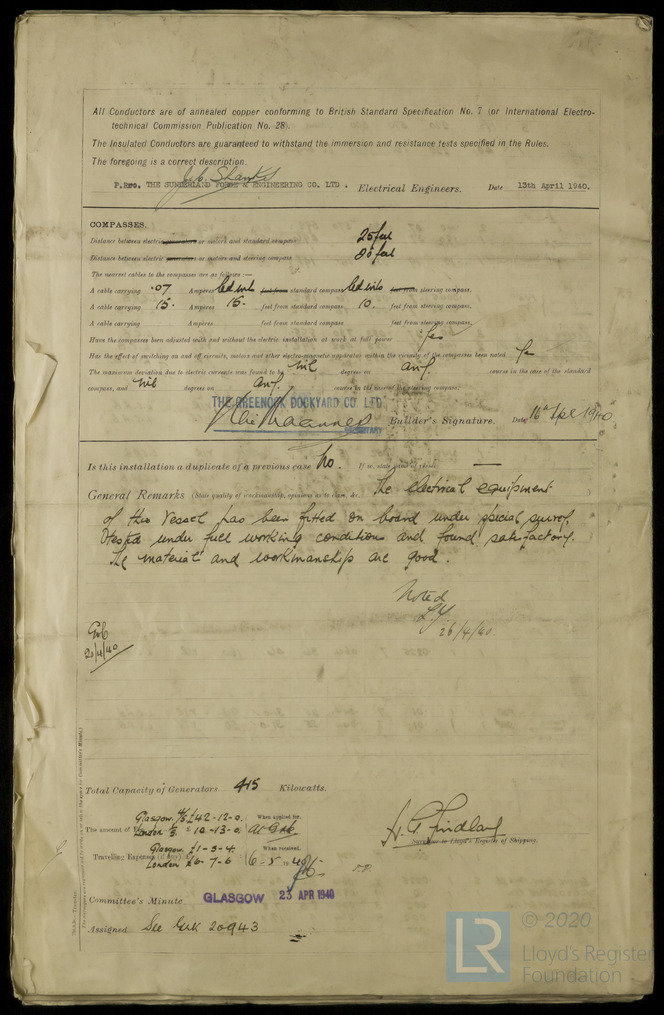 All Conductors are of annealed copper conforming to British Standard Specification No. 7 (or International Electro-
technical Commission Publication No. 28).
The Insulated Conductors are guaranteed to withstand the immersion and resistance tests specified in the Rules.
The foregoing is a correct description.
P.Pro. THE SUNDERLAND FORGE & ENGINEERING CO. LTD. Electrical Engineers. Date 13th April 1940.
COMPASSES.
Distance between electric generators or motors and standard compass 25 feet
Distance between electric generators or motors and steering compass 20 feet
The nearest cables to the compasses are as follows:—
A cable carrying .07 Amperes led into feet from standard compass led into feet from steering compass.
A cable carrying 15. Amperes 15. feet from standard compass 10. feet from steering compass.
A cable carrying Amperes feet from standard compass feet from steering compass.
Have the compasses been adjusted with and without the electric installation at work at full power Yes
Has the effect of switching on and off circuits, motors and other electro-magnetic apparatus within the vicinity of the compasses been noted Yes
The maximum deviation due to electric currents was found to be nil degrees on any course in the case of the standard
compass, and nil degrees on any course in the case of the steering compass.
THE GREENOCK DOCKYARD CO. LTD
SECRETARY Builder's Signature. Date 16th Apl 1940
Is this installation a duplicate of a previous case No. If so, state name of vessel —
General Remarks (State quality of workmanship, opinions as to class, &c. The electrical equipment
of this vessel has been fitted on board under special survey,
tested under full working conditions and found satisfactory.
The material and workmanship are good.
Noted
26/4/40
20/4/40
Total Capacity of Generators 415 Kilowatts.
Glasgow 4/5 £42-12-0. When applied for,
The amount of Fee London 1/5 £ 10-13-0
Glasgow £1-5-4. When received,
Travelling Expenses (if any) London £6-7-6 16-5-1940
H. G. Findlay
Surveyor to Lloyd's Register of Shipping.
Committee's Minute GLASGOW 23 APR 1940
Assigned See GLK 20943
LR © 2020
Lloyd's Register
Foundation